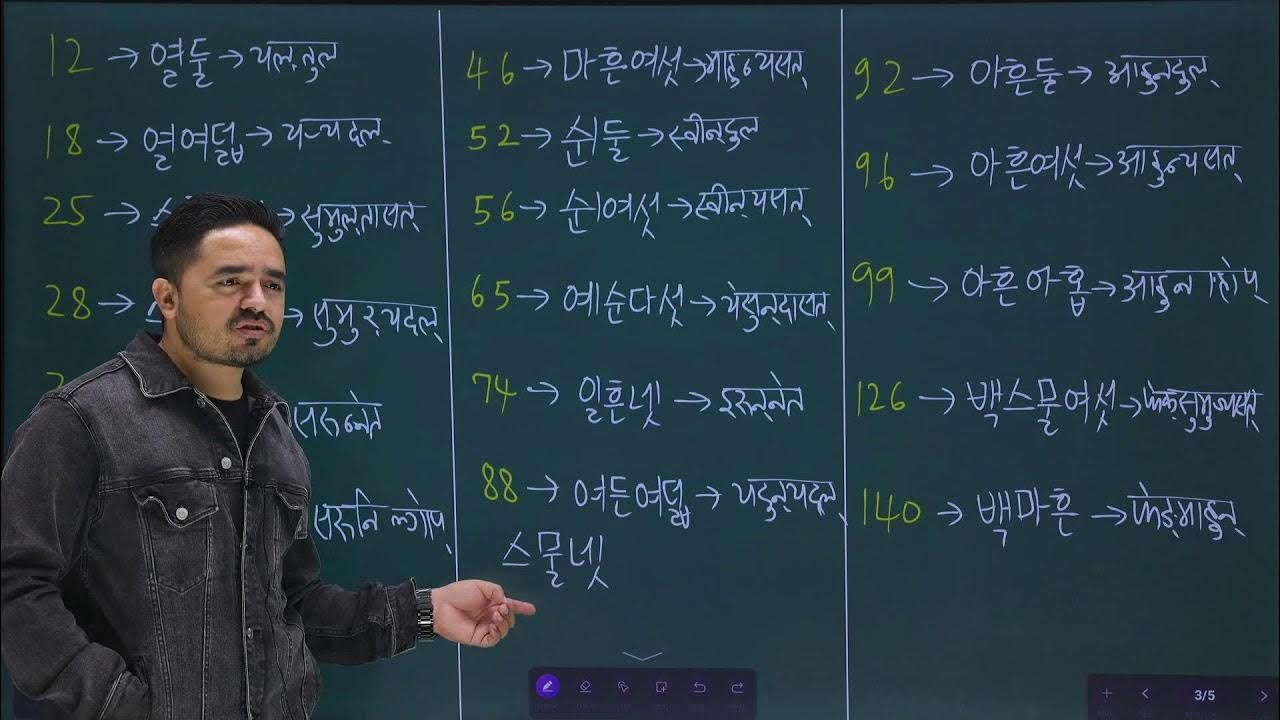 12 → 열둘 → यल्तुल
18 → 열여덟 → यल्यदल्
25 → → सुमुल्तासत्
28 → → सुमुर्यदल्
सरुन्नेत
46 → 마흔여섯 → माहुन्यसत्
52 → 쉰둘 → स्वीन्दुल
56 → 쉰여섯 → स्वीन्यसत्
65 → 예순다섯 → येसुन्दासत्
74 → 일흔넷 → इरुन्नेत
88 → 여든여덟 → यदुन्यदल्
스물넷
92 → 아흔둘 → आहुन्दुल्
96 → 아흔여섯 → आहुन्यसत्
99 → 아흔아홉 →
126 → 백스물여섯 →
140 → 백마흔 →
3/5